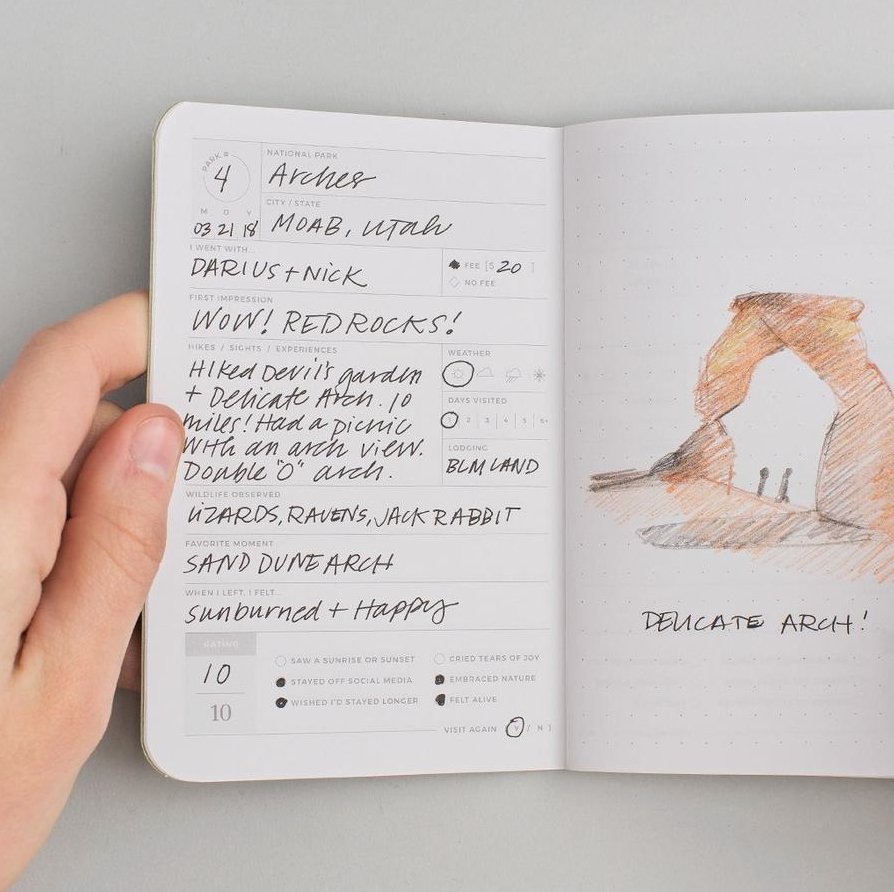 PARK #
4
NATIONAL PARK
Arches
M D Y
03 21 18
CITY / STATE
MOAB, UTah
I WENT WITH...
DARIUS + NICK
FEE [$ 20 ]
NO FEE
FIRST IMPRESSION
WOW! RED ROCKS!
HIKES / SIGHTS / EXPERIENCES
HIKed Devil's garden
+ Delicate Arch. 10
miles! Had a picnic
with an arch view.
Double "O" arch.
WEATHER
DAYS VISITED
1 2 3 4 5 6+
LODGING
BLM LAND
WILDLIFE OBSERVED
LIZARDS, RAVENS, JACK RABBIT
FAVORITE MOMENT
SAND DUNE ARCH
WHEN I LEFT, I FELT...
sunburned + Happy
RATING
10
10
SAW A SUNRISE OR SUNSET
CRIED TEARS OF JOY
STAYED OFF SOCIAL MEDIA
EMBRACED NATURE
WISHED I'D STAYED LONGER
FELT ALIVE
VISIT AGAIN [ Y / N ]
DELICATE ARCH!